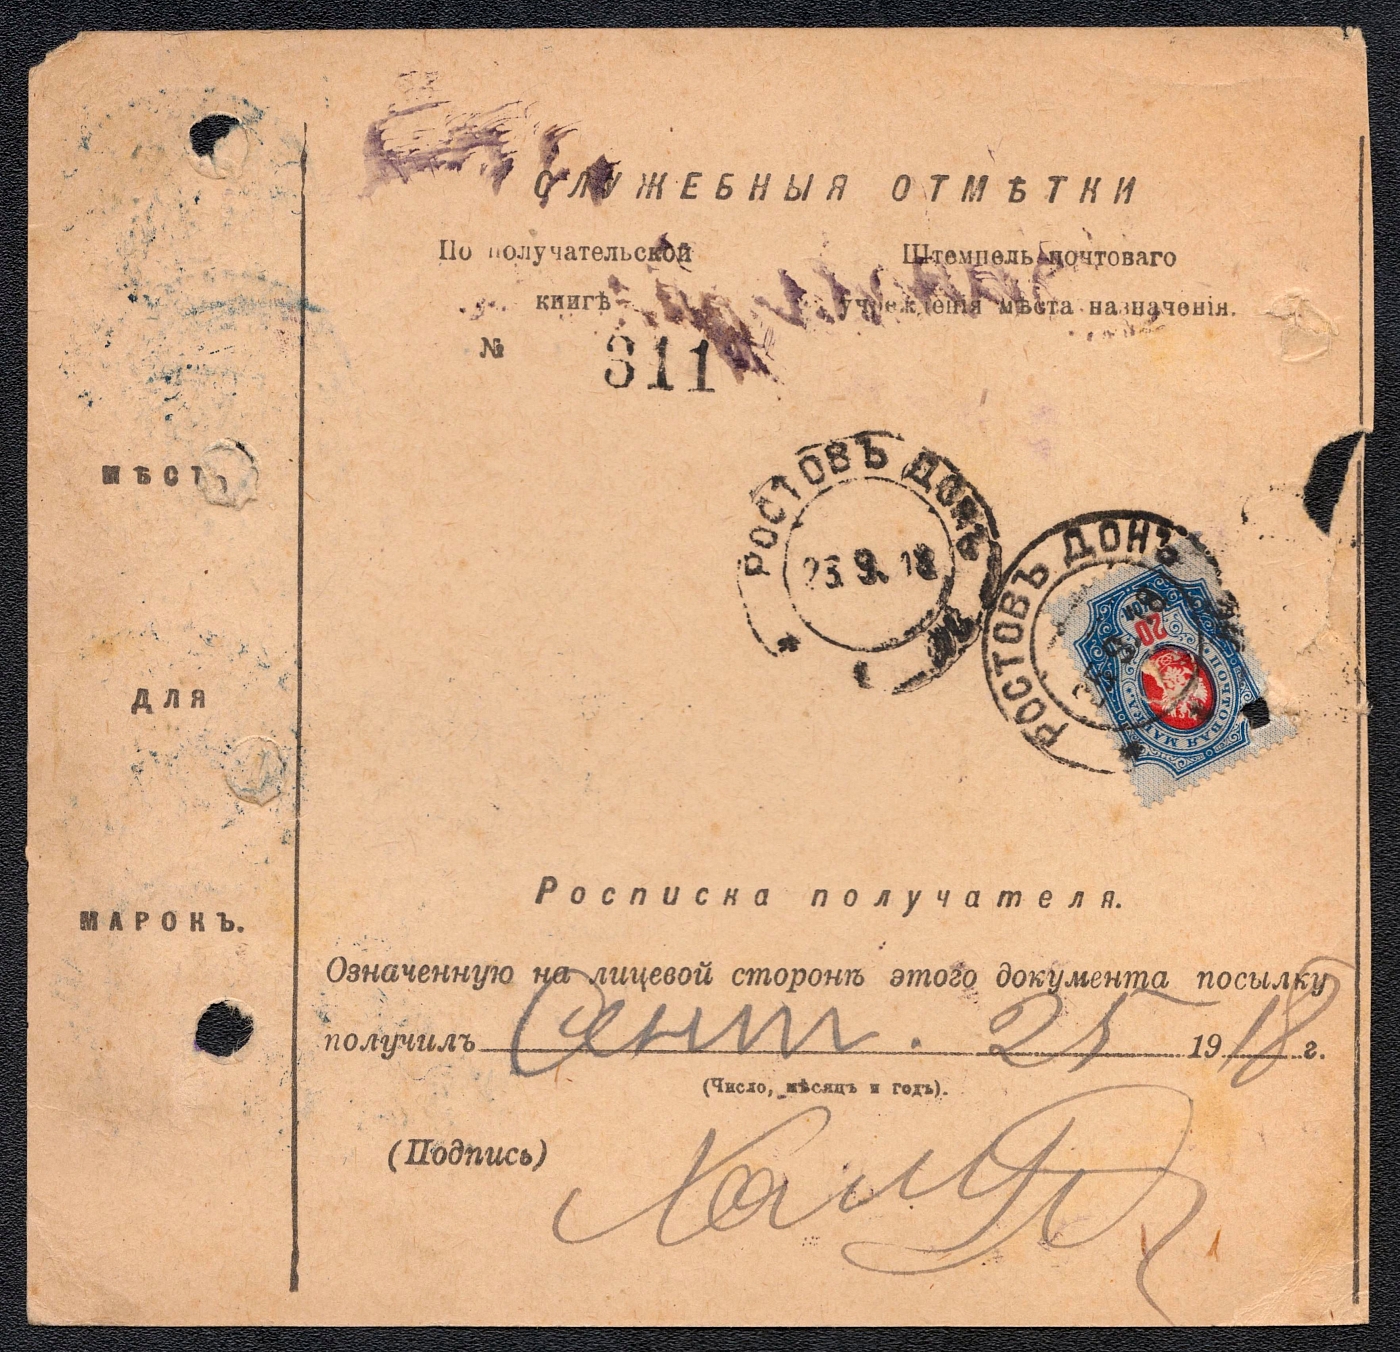 СЛУЖЕБНЫЯ ОТМѢТКИ
По получательской
книгѣ
№ 311
Штемпель почтоваго
учрежденія мѣста назначенія.
МѢСТО
ДЛЯ
МАРОКЪ.
РОСТОВЪ ДОНЪ
23.9.18
РОСТОВЪ ДОНЪ
20
КОП
ПОЧТОВАЯ МАРКА
Росписка получателя.
Означенную на лицевой сторонѣ этого документа посылку
получилъ Сент. 25 1918 г.
(Число, мѣсяцъ и годъ).
(Подпись)